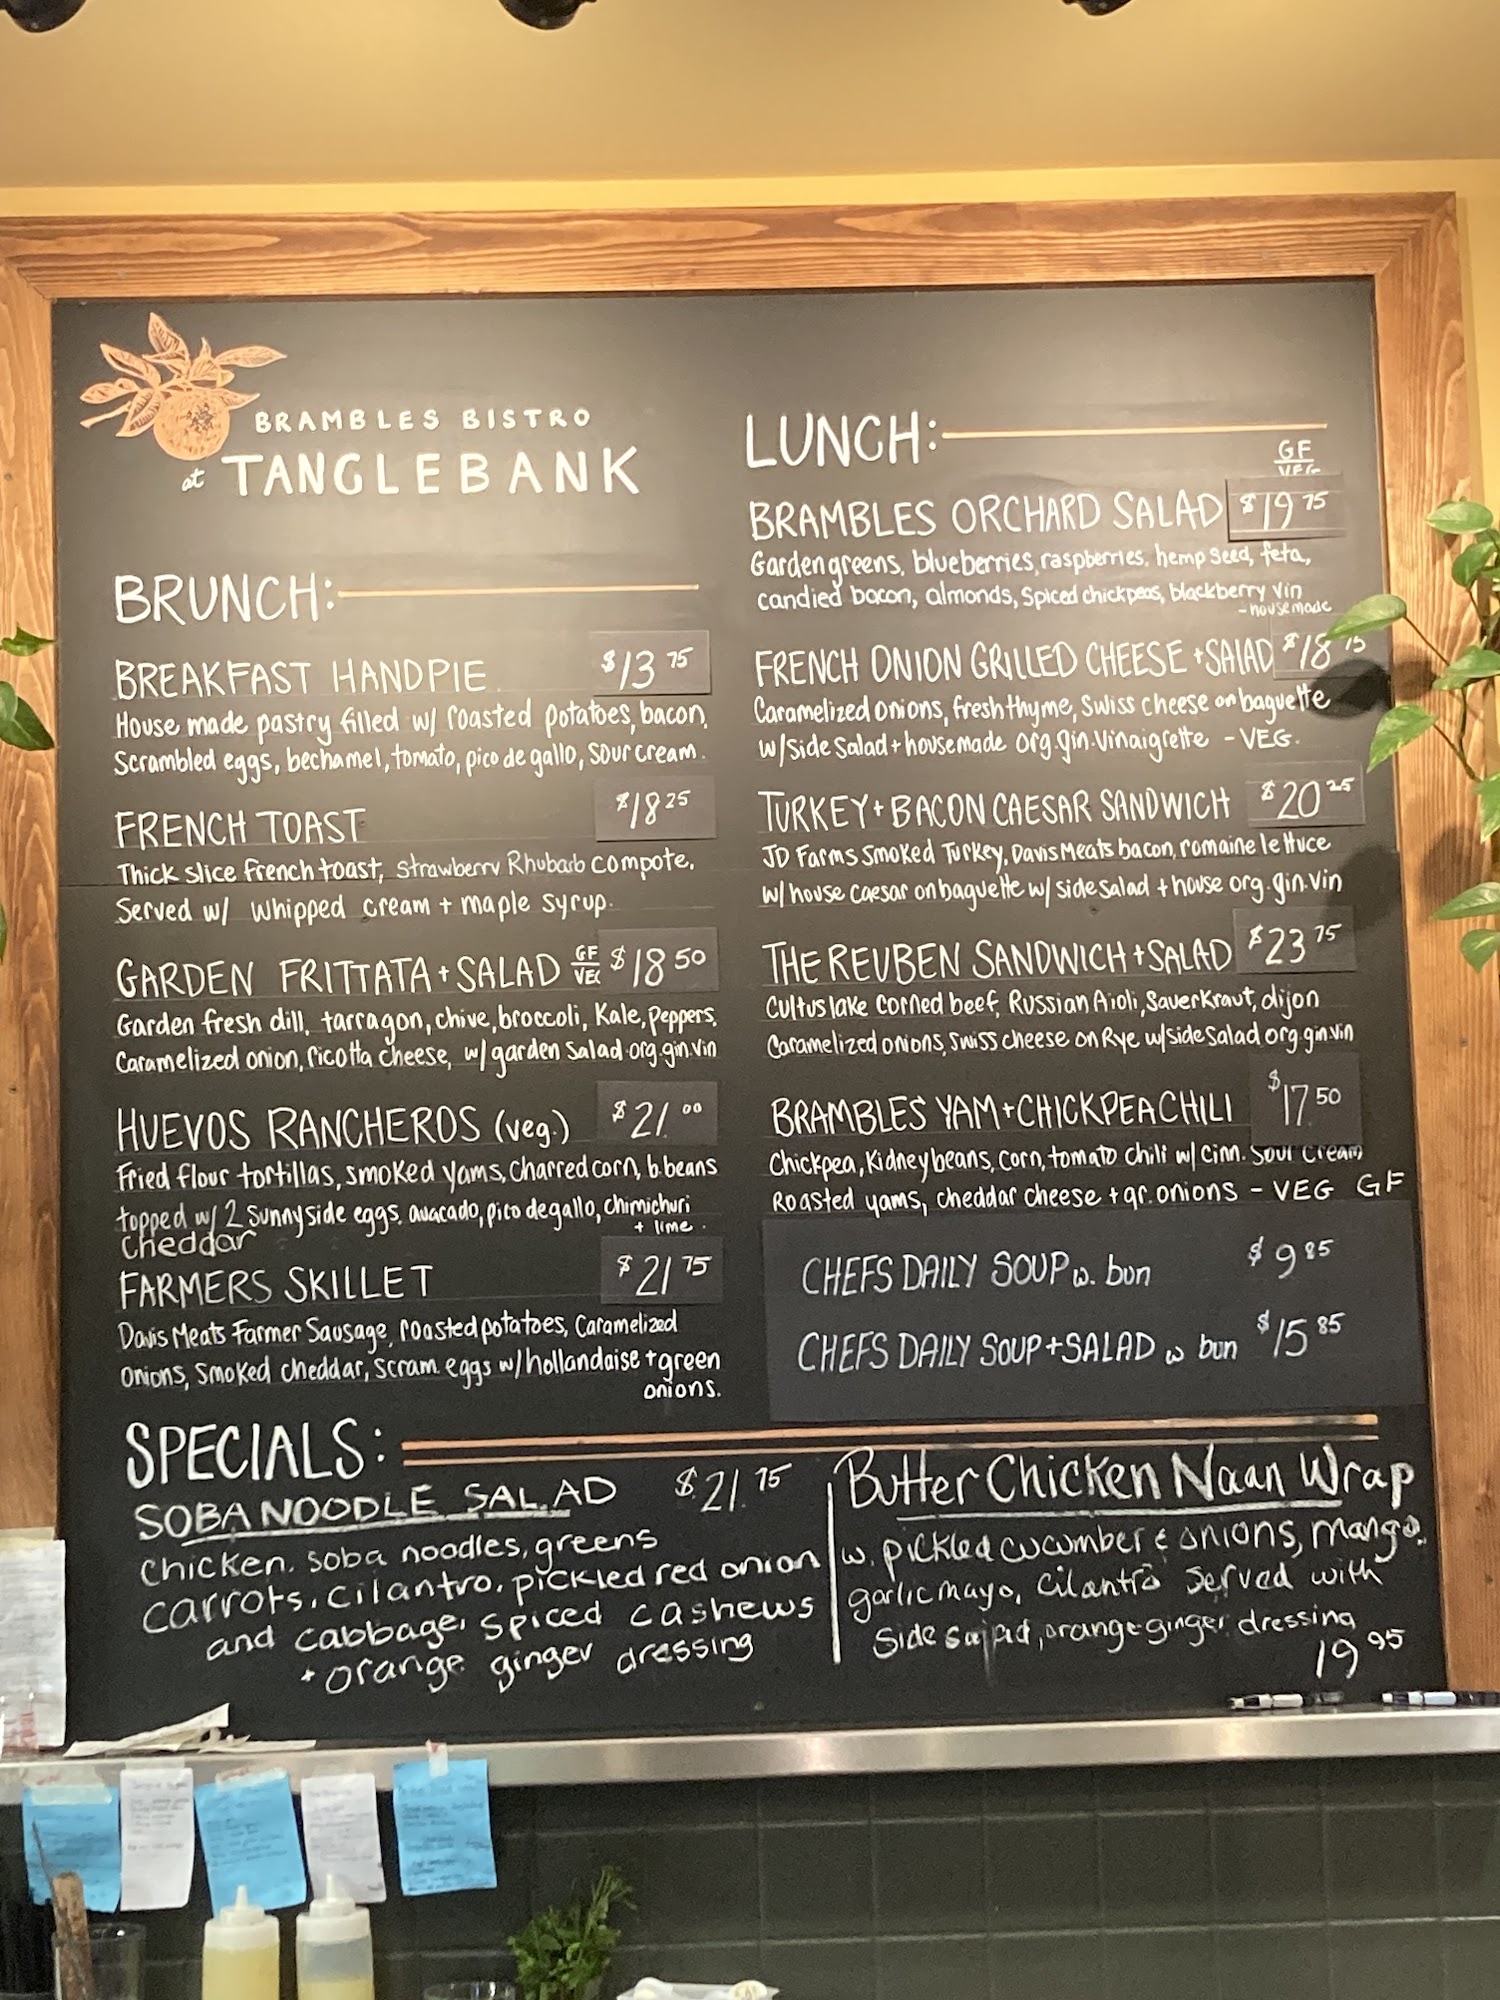 BRAMBLES BISTRO
at TANGLEBANK
BRUNCH:
BREAKFAST HANDPIE $13 75
House made pastry filled w/ roasted potatoes, bacon,
Scrambled eggs, bechamel, tomato, pico de gallo, sour cream.
FRENCH TOAST $18 25
Thick slice french toast, Strawberry Rhubarb compote,
Served w/ whipped cream + maple syrup.
GARDEN FRITTATA + SALAD GF VEG $18 50
Garden fresh dill, tarragon, chive, broccoli, Kale, peppers,
Caramelized onion, ricotta cheese, w/ garden salad org.gin.vin
HUEVOS RANCHEROS (veg.) $21.00
Fried flour tortillas, smoked yams, charred corn, b.beans
topped w/ 2 sunnyside eggs, avacado, pico degallo, chimichuri
+ lime.
Cheddar
FARMERS SKILLET $21 75
Davis Meats Farmer Sausage, roasted potatoes, Caramelized
onions, smoked cheddar, scram. eggs w/ hollandaise + green
onions.
LUNCH:
GF
VEG
BRAMBLES ORCHARD SALAD $19 75
Garden greens, blueberries, raspberries, hemp seed, feta,
candied bacon, almonds, spiced chickpeas, blackberry vin
- housemade
FRENCH ONION GRILLED CHEESE + SALAD $18 75
Caramelized onions, fresh thyme, Swiss cheese on baguette
w/ side salad + housemade org.gin.vinaigrette - VEG.
TURKEY + BACON CAESAR SANDWICH $20 25
JD Farms Smoked Turkey, Davis Meats bacon, romaine lettuce
w/ house caesar on baguette w/ side salad + house org.gin.vin
THE REUBEN SANDWICH + SALAD $23 75
Cultus lake Corned beef, Russian Aioli, Sauerkraut, dijon
Caramelized onions, swiss cheese on Rye w/ side Salad org.gin.vin
BRAMBLES YAM + CHICKPEA CHILI $17.50
Chickpea, Kidney beans, corn, tomato chili w/ cinn. sour cream
Roasted yams, cheddar cheese + gr. onions - VEG GF
CHEFS DAILY SOUP w. bun $9 85
CHEFS DAILY SOUP + SALAD w bun $15 85
SPECIALS:
SOBA NOODLE SALAD $21.75
chicken, soba noodles, greens
carrots, cilantro, pickled red onion
and cabbage, spiced cashews
+ orange ginger dressing
Butter Chicken Naan Wrap
w. pickled cucumber & onions, mango,
garlic mayo, cilantro served with
side salad, orange-ginger dressing
19 95